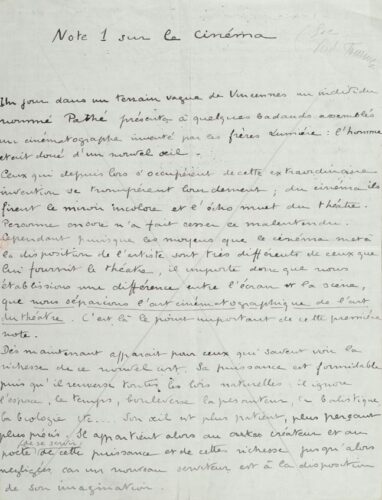 Note 1 sur le cinéma
Un jour dans un terrain vague de Vincennes un individu
nommé Pathé présenta à quelques badauds assemblés
un cinématographe inventé par les frères Lumière : l'homme
était doué d'un nouvel œil.
Ceux qui depuis lors s'occupèrent de cette extraordinaire
invention se trompèrent lourdement ; du cinéma ils
firent le miroir incolore et l'écho muet du théâtre.
Personne encore n'a fait cesser ce malentendu.
Cependant puisque les moyens que le cinéma met à
la disposition de l'artiste sont très différents de ceux que
lui fournit le théâtre, il importe donc que nous
établissions une différence entre l'écran et la scène,
que nous séparions l'art cinématographique de l'art
du théâtre. C'est là le point important de cette première
note.
Dès maintenant apparaît pour ceux qui savent voir la
richesse de ce nouvel art. Sa puissance est formidable
puisqu'il renverse toutes les lois naturelles : il ignore
l'espace, le temps, bouleverse la pesanteur, la balistique
la biologie etc.... Son œil est plus patient, plus perçant
plus précis. Il appartient alors au créateur et au
poète de se servir de cette puissance et de cette richesse jusqu'alors
négligées car un nouveau serviteur est à la disposition
de son imagination.